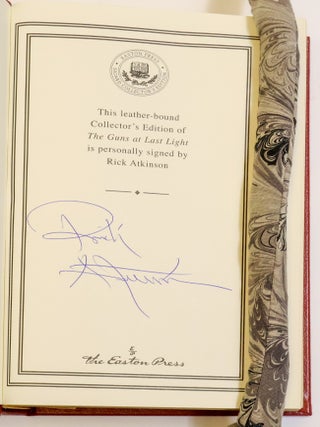 EASTON PRESS
This leather-bound
Collector's Edition of
The Guns at Last Light
is personally signed by
Rick Atkinson
Rick
Atkinson
The Easton Press